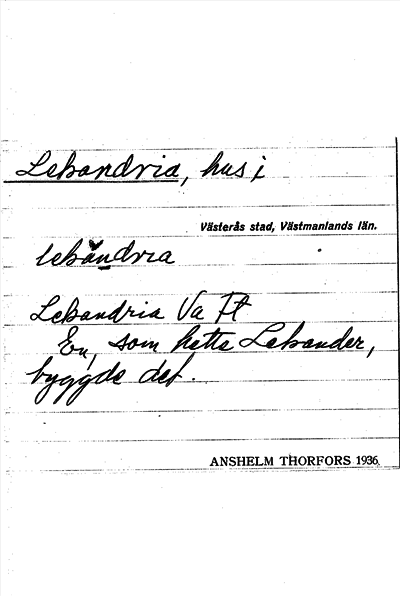 Leksandria, hus i
Västerås stad, Västmanlands län.
Leksandria Va Ft
En, som hette Leksander,
byggde det.
ANSHELM THORFORS 1936.